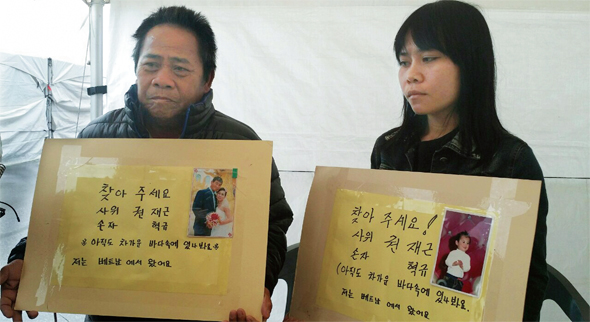 찾아 주세요
사위 권 재근
손자 혁규
※ 아직도 차가운 바다속에 있나봐요 ※
저는 베트남 에서 왔어요
찾아 주세요!
사위 권 재근
손자 혁규
(아직도 차가운 바다속에 있나봐요.
저는 베트남 에서 왔어요